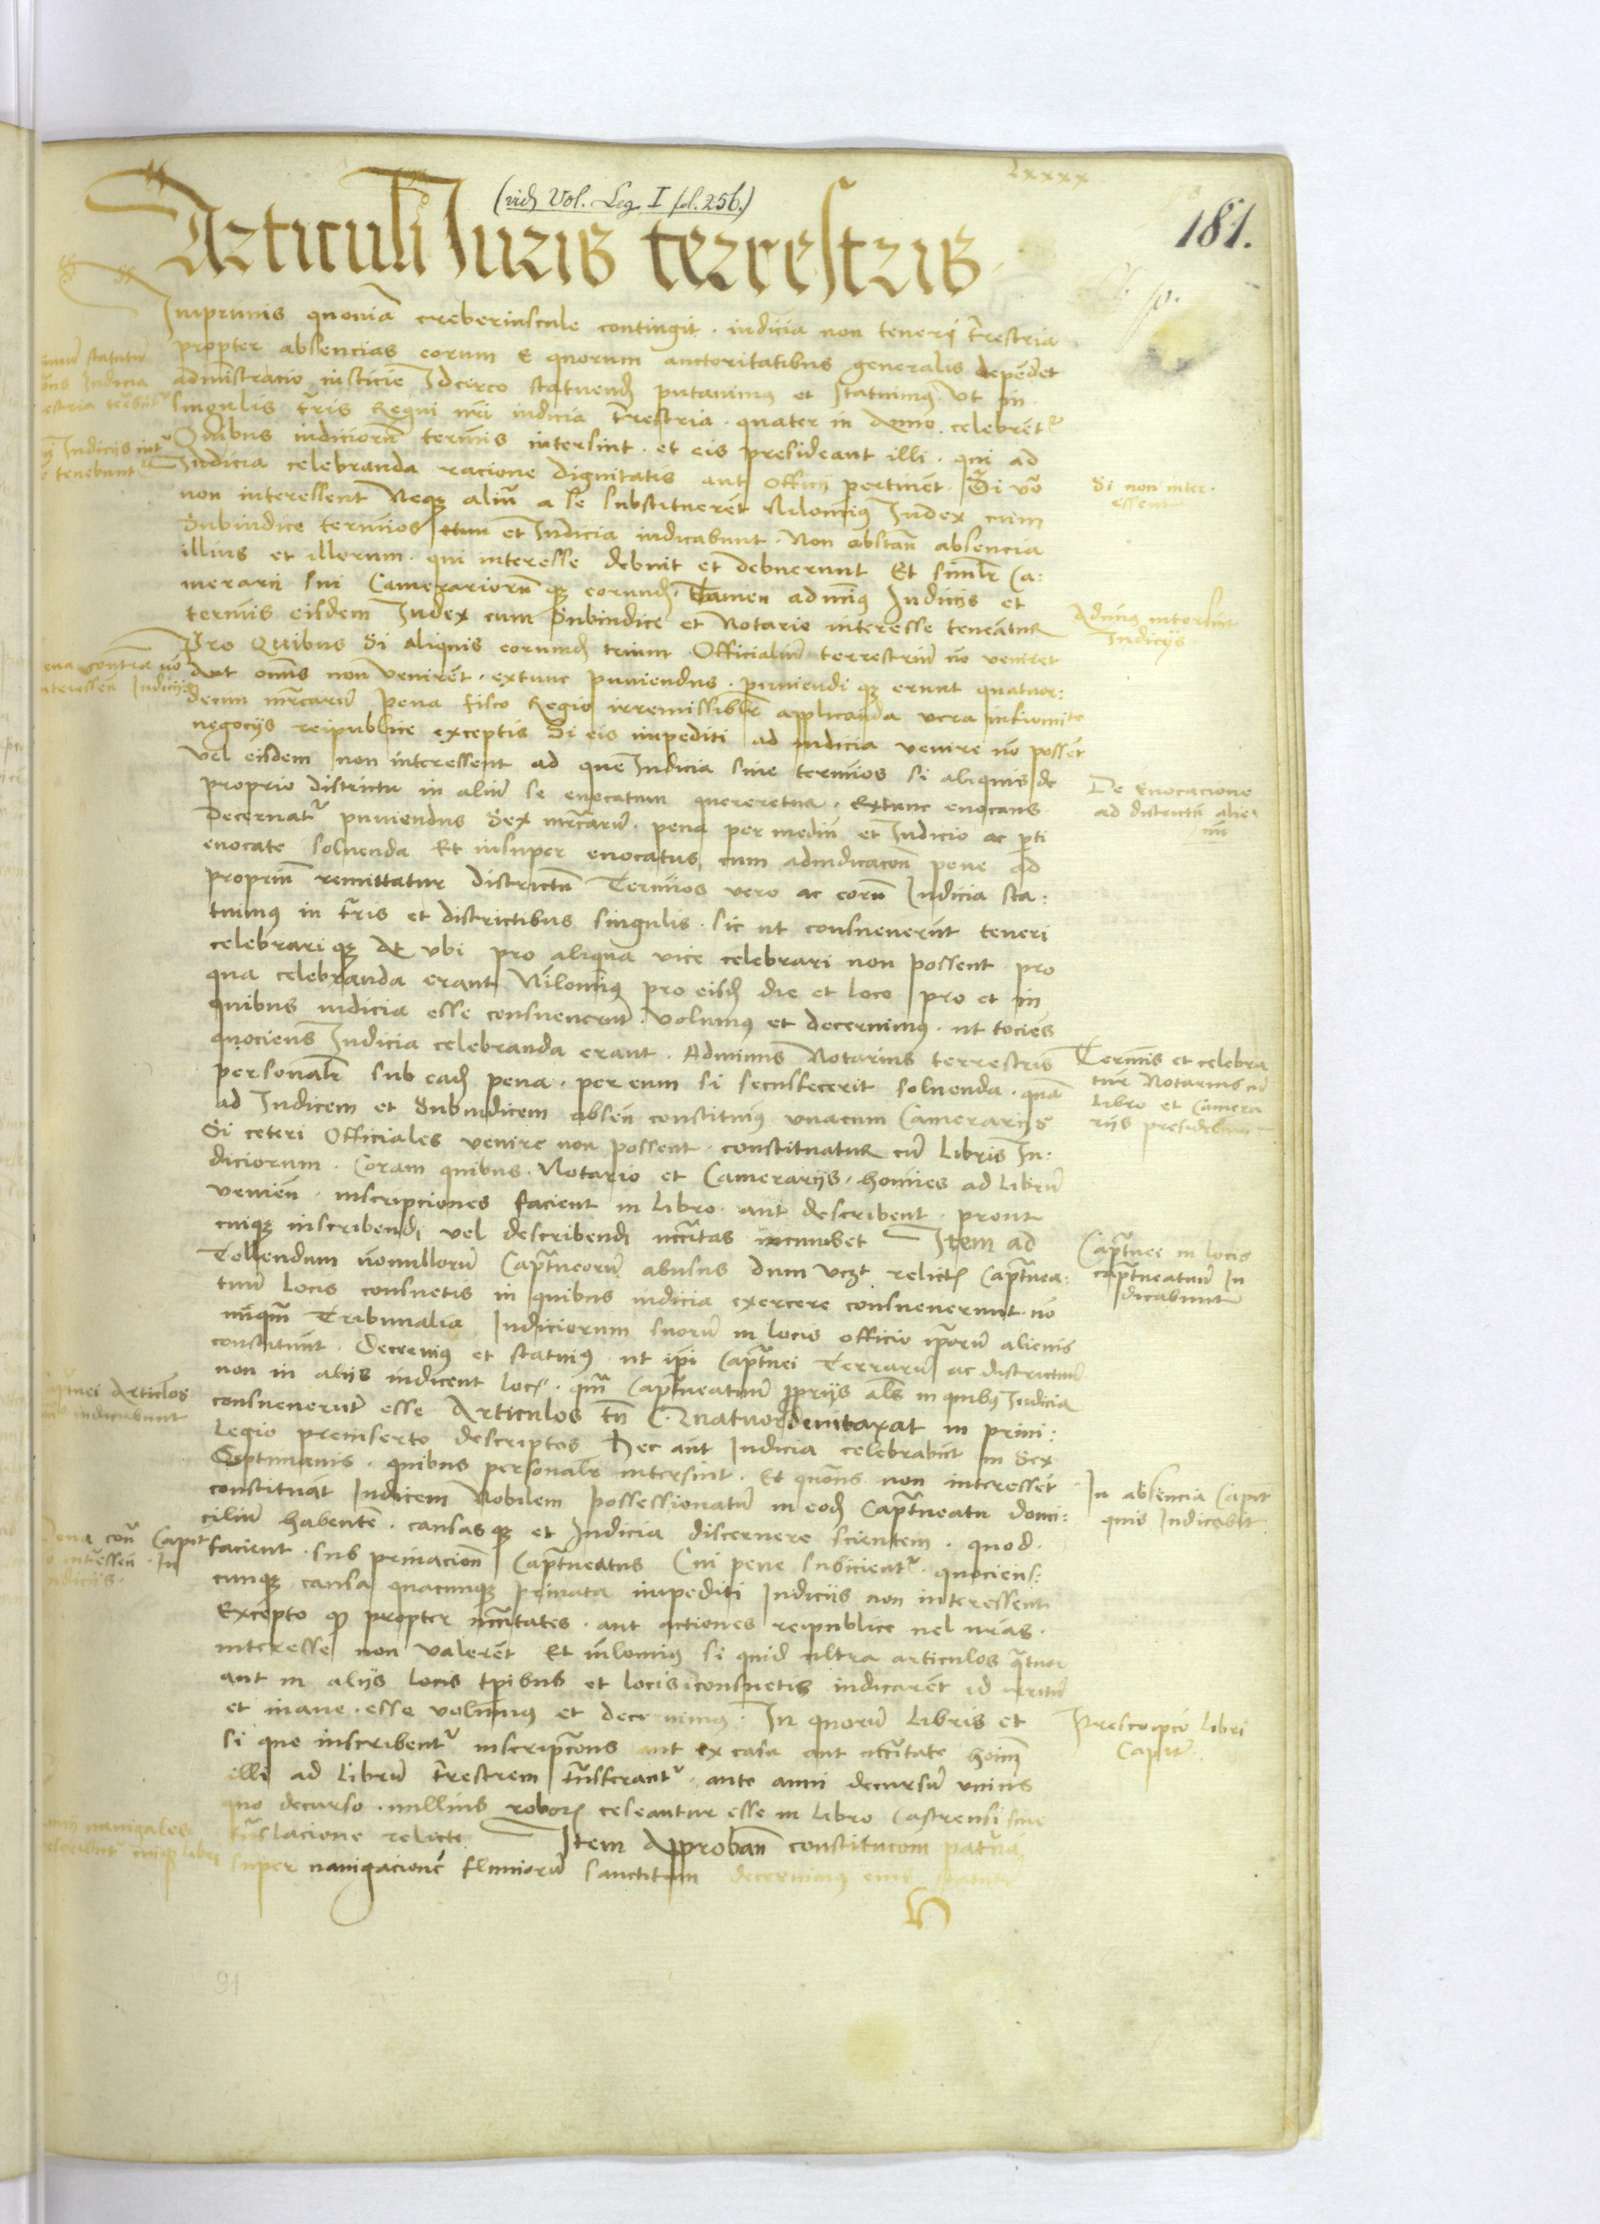 Lxxxx
(vid. Vol. Leg. I fol. 256.)
181.
Articuli Iuris terrestris
Imprimis quoniā creberiuscule contingit . iudicia non teneri trestria
propter absencias eorum e quorum auctoritatibus generalis depēdet
admistracio iusticie Idcirco statuend putavimus et statuimus Vt in
singulis tris Regni nri iudicia trestria . quater in Anno celebrēt
Quibus iudiciorū termis intersint . et eis presideant illi . qui ad
Iudicia celebranda racione dignitatis aut officij pertinēt . Si vo
non interessent Neqz aliū a se substituerēt Nilomiq Iudex cum
Subiudice termios et Iudicia iudicabunt . Non obstan absencia
illius et illorum . qui interesse debuit et debuerunt Et similr Ca:
merarii sui Camerariorū qz eorund . Tamen admiq Iudicijs et
termis eisdem Iudex cum Subiudice et Notario interesse teneātur
Pro Quibus Si aliquis eorumd trium Officialiū terrestriū nō veniret
Aut omīs non venirēt . extunc puniendus . puniendi qz erunt quatuor:
decim mrcarū pena fisco Regio irremissiblr applicanda vera infirmite
negocijs reipublice exceptis Si eis impediti ad iudicia venire nō possēt
Vel eisdem non interessent ad que Iudicia sive termios si aliquis de
proprio districtu in aliū se evocatum quereretur . Extunc evocans
Decernat puniendus Sex mrcarū . pena per mediū et Iudicio ac pti
evocate solvenda Et insuper evocatus cum adiudicacon pene ad
propriū remittatur districtū Termios vero ac eorū Iudicia sta:
tuimq in tris et districtibus singulis . sic ut consueverūt teneri
celebrari qz At ubi pro aliqua vice celebrari non possent pro
qua celebranda erant Nilomiq pro eisd die et loco pro et in
quibus iudicia esse consueverūt . Volumq et decernimq . ut tociēs
quociens Iudicia celebranda erant . Adminus Notarius terrestris
personalr sub ead pena . per eum si secusfecerit solvenda . quā
ad Iudicem et Subiudicem absen constituiq vnacum Camerarijs
Si ceteri Officiales venire non possent . constituatur cū Libris Iu:
diciorum . Coram quibus . Notario et Camerarijs . homies ad Librū
venien . inscripciones facient in Libro . aut describent . prout
cuiqz inscribendi vel describendi nccitas incumbet Item ad
Tollendum nonullorū Captneorū abusus dum vczt relict Captnea:
tuū locis consuetis in quibus iudicia exercere consueverunt . nō
nūqm Tribunalia Iudiciorum suorū in locis officio ipsorū alienis
constitūnt . Decrevimq et statuiq . ut ipi Captnei Terrarū ac districtuū
non in alijs iudicent locis . qm Captneatuū pprijs als in quibq Iudicia
consueverūt esse Articulos tn C. Quatuor dumtaxat in privi:
legio preinserto descriptos Hec aut Iudicia celebrabūt in Sex
Septimanis . quibus personalr intersint . Et quons non interessēt
constituāt Iudicem Nobilem possessionatū in eod Captneatu domi:
ciliū habentē . causas qz et Iudicia discernere scientem . quod .
facient . sub privacion Captneatus Cui pene subicient . quociens:
cunqz causa quacunqz privata impediti Iudicijs non interessent
Excepto qd propter nccitates . aut actiones reipublice vel nras .
interesse non valerēt Et nilomiq si quid ultra articulos qtuor
aut in alijs locis tpibus et locis consuetis iudicarēt id irritū
et inane . esse volumq et decernimus . In quorū Libris et
si que inscribent inscripcons aut ex casu aut nccitate hoim
illi ad Librū trestrem trsferant . ante anni decursū unius
quo decurso . nullius robor ceseantur esse in Libro Castrensi sine
trslacione relicte Item Approban constitucom patrna
super navigacione fluviorū sanctitam decernimus
Iudicia
n Iudicijs
tenebunt
Si non inter
essent
Admiq intersint
Iudicijs
ena contra nō
nteressen Iudicijs
De Evocacione
ad districtū alie
nū
Termis et celebra
tur Notarius cū
Libro et Camera
rijs presidebun
Captnei in locis
captneatuū Iu
dicabunt
aptnei Articlos
iudicabunt
In absencia Capit
quis Iudicabit
Pena con Capit
interessen In
udicijs .
Prescripcō Libri
Capitn
navigales
91